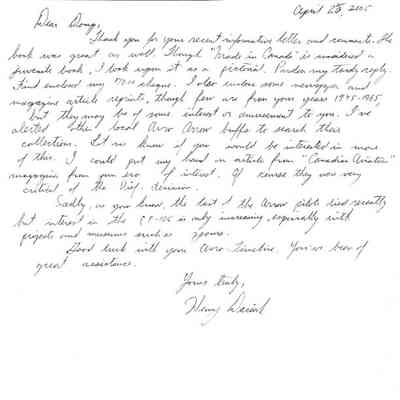 April 28, 2005
Dear Doug,
Thank you for your recent informative letter and comments. The
book was great as well. Though "Made in Canada" is considered a
juvenile book, I look upon it as a pictorial. Pardon my tardy reply.
Find enclosed my cheque. I also enclose some newspaper and
magazine article reprints, though few are from your years 1945-1965,
but they may be of some interest or amusement to you. I've
alerted other local Avro Arrow buffs to search their
collections. Let me know if you would be interested in more
of this. I could put my hand on articles from "Canadian Aviation"
magazines from our era of interest. Of course they were very
critical of the Dief. decision.
Sadly, as you know, the last of the Arrow pilots died recently
but interest in the CF-105 is only increasing, especially with
projects and museums such as yours.
Good luck with your Avro timeline. You've been of
great assistance.
Yours truly,
Henry